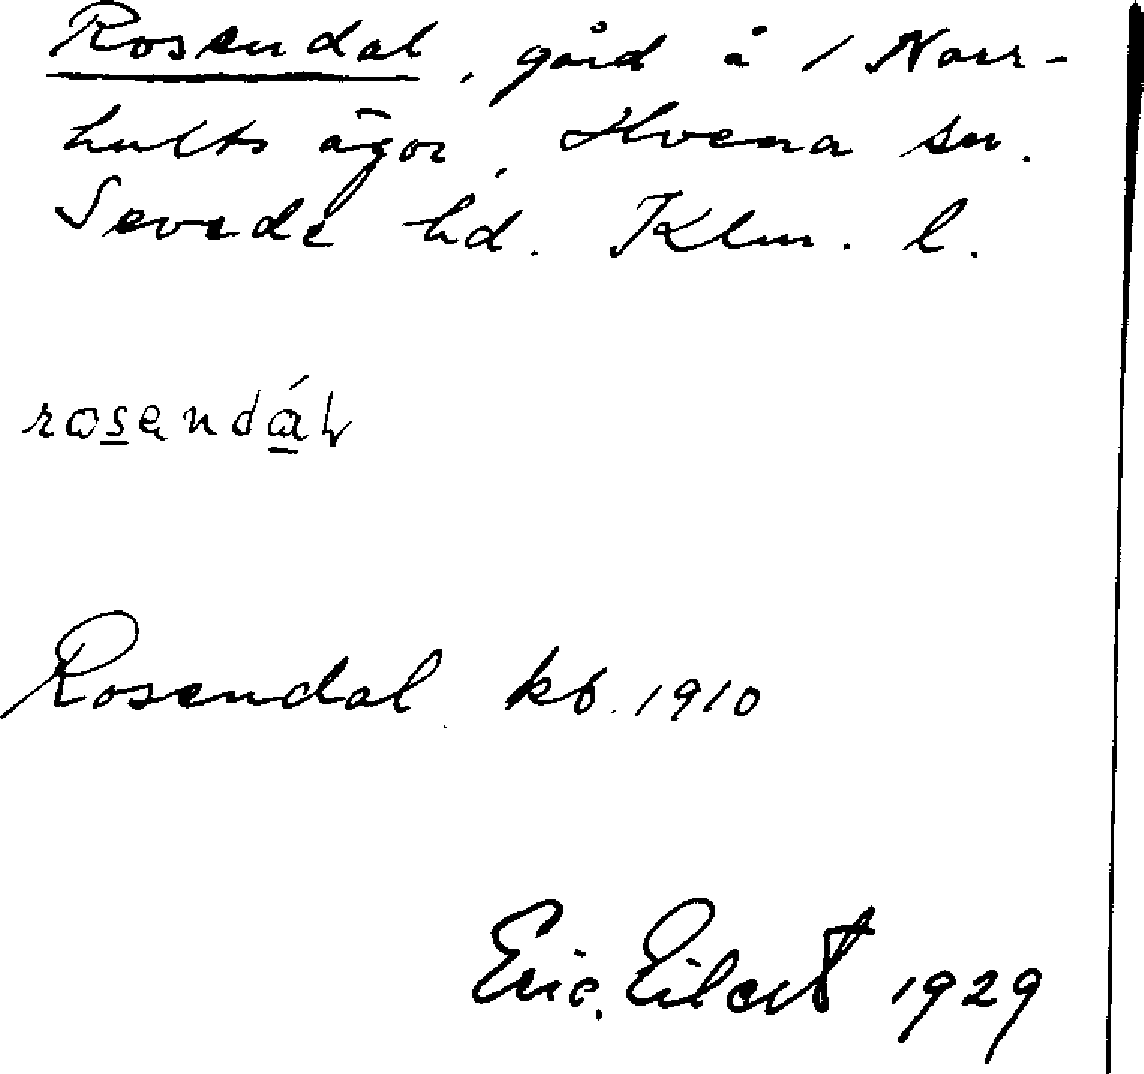 Rosendal, gård å 1 Norr-
hults ägor, Hvena sn.
Sevede hd. Klm. l.
rosendál
Rosendal kb. 1910
Eric Eilert 1929